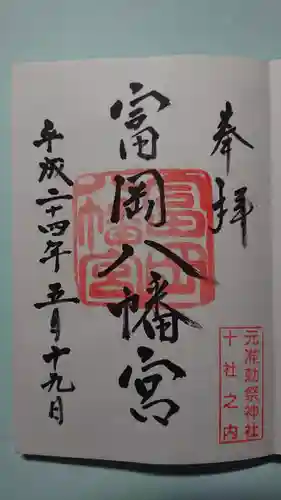 奉拝
元准勅祭神社
十社之内
富岡八幡宮
富岡八幡宮
平成二十四年五月十九日